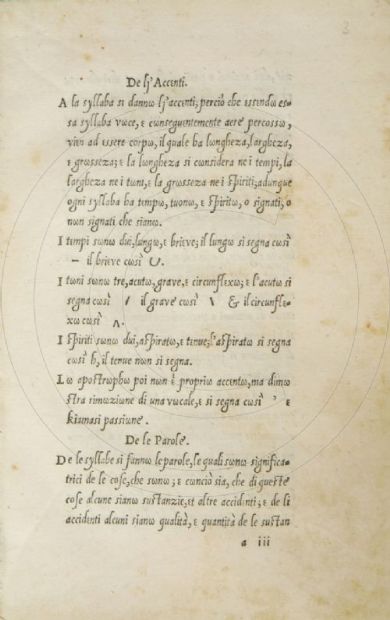 3
De lj' Accenti.
A la syllaba si dannω lj'accenti; perciò che essendω es-
sa syllaba vωce, ε cωnsequentemente aere percossω,
vien ad essere corpω, il quale ha lungheza, largheza,
ε grωsseza; ε la lungheza si considera ne i tempi, la
largheza ne i tuni, ε la grωsseza ne i spiriti; adunque
ogni syllaba ha tempω, tuonω, ε spiritω, o signati, o
nωn signati che sianω.
I tempi sωnω dui, lungω, ε brieve; il lungω si segna cωsì
– il brieve cωsì ∪.
I tuni sωnω tre, acutω, grave, ε circunflexω; ε l'acutω si
segna cωsì / il grave cωsì \ & il circunfle-
xω cωsì ʌ.
I spiriti sωnω dui, aspiratω, ε tenue; l'aspiratω si segna
cωsì h, il tenue nωn si segna.
Lω apostrωphω poi nωn ὲ propriω accentω, ma dimω
stra rimωzione di una vωcale, ε si segna cωsì ' ε
kiamasi passiωne.
De le Parole.
De le syllabe si fannω le parole, le quali sωnω significa-
trici de le cose, che sωnω; ε cωnciò sia, che di queste
cose alcune sianω sustanzie, et altre accidenti; ε de li
accidenti alcuni sianω qualità, ε quantità de le sustan
a iii